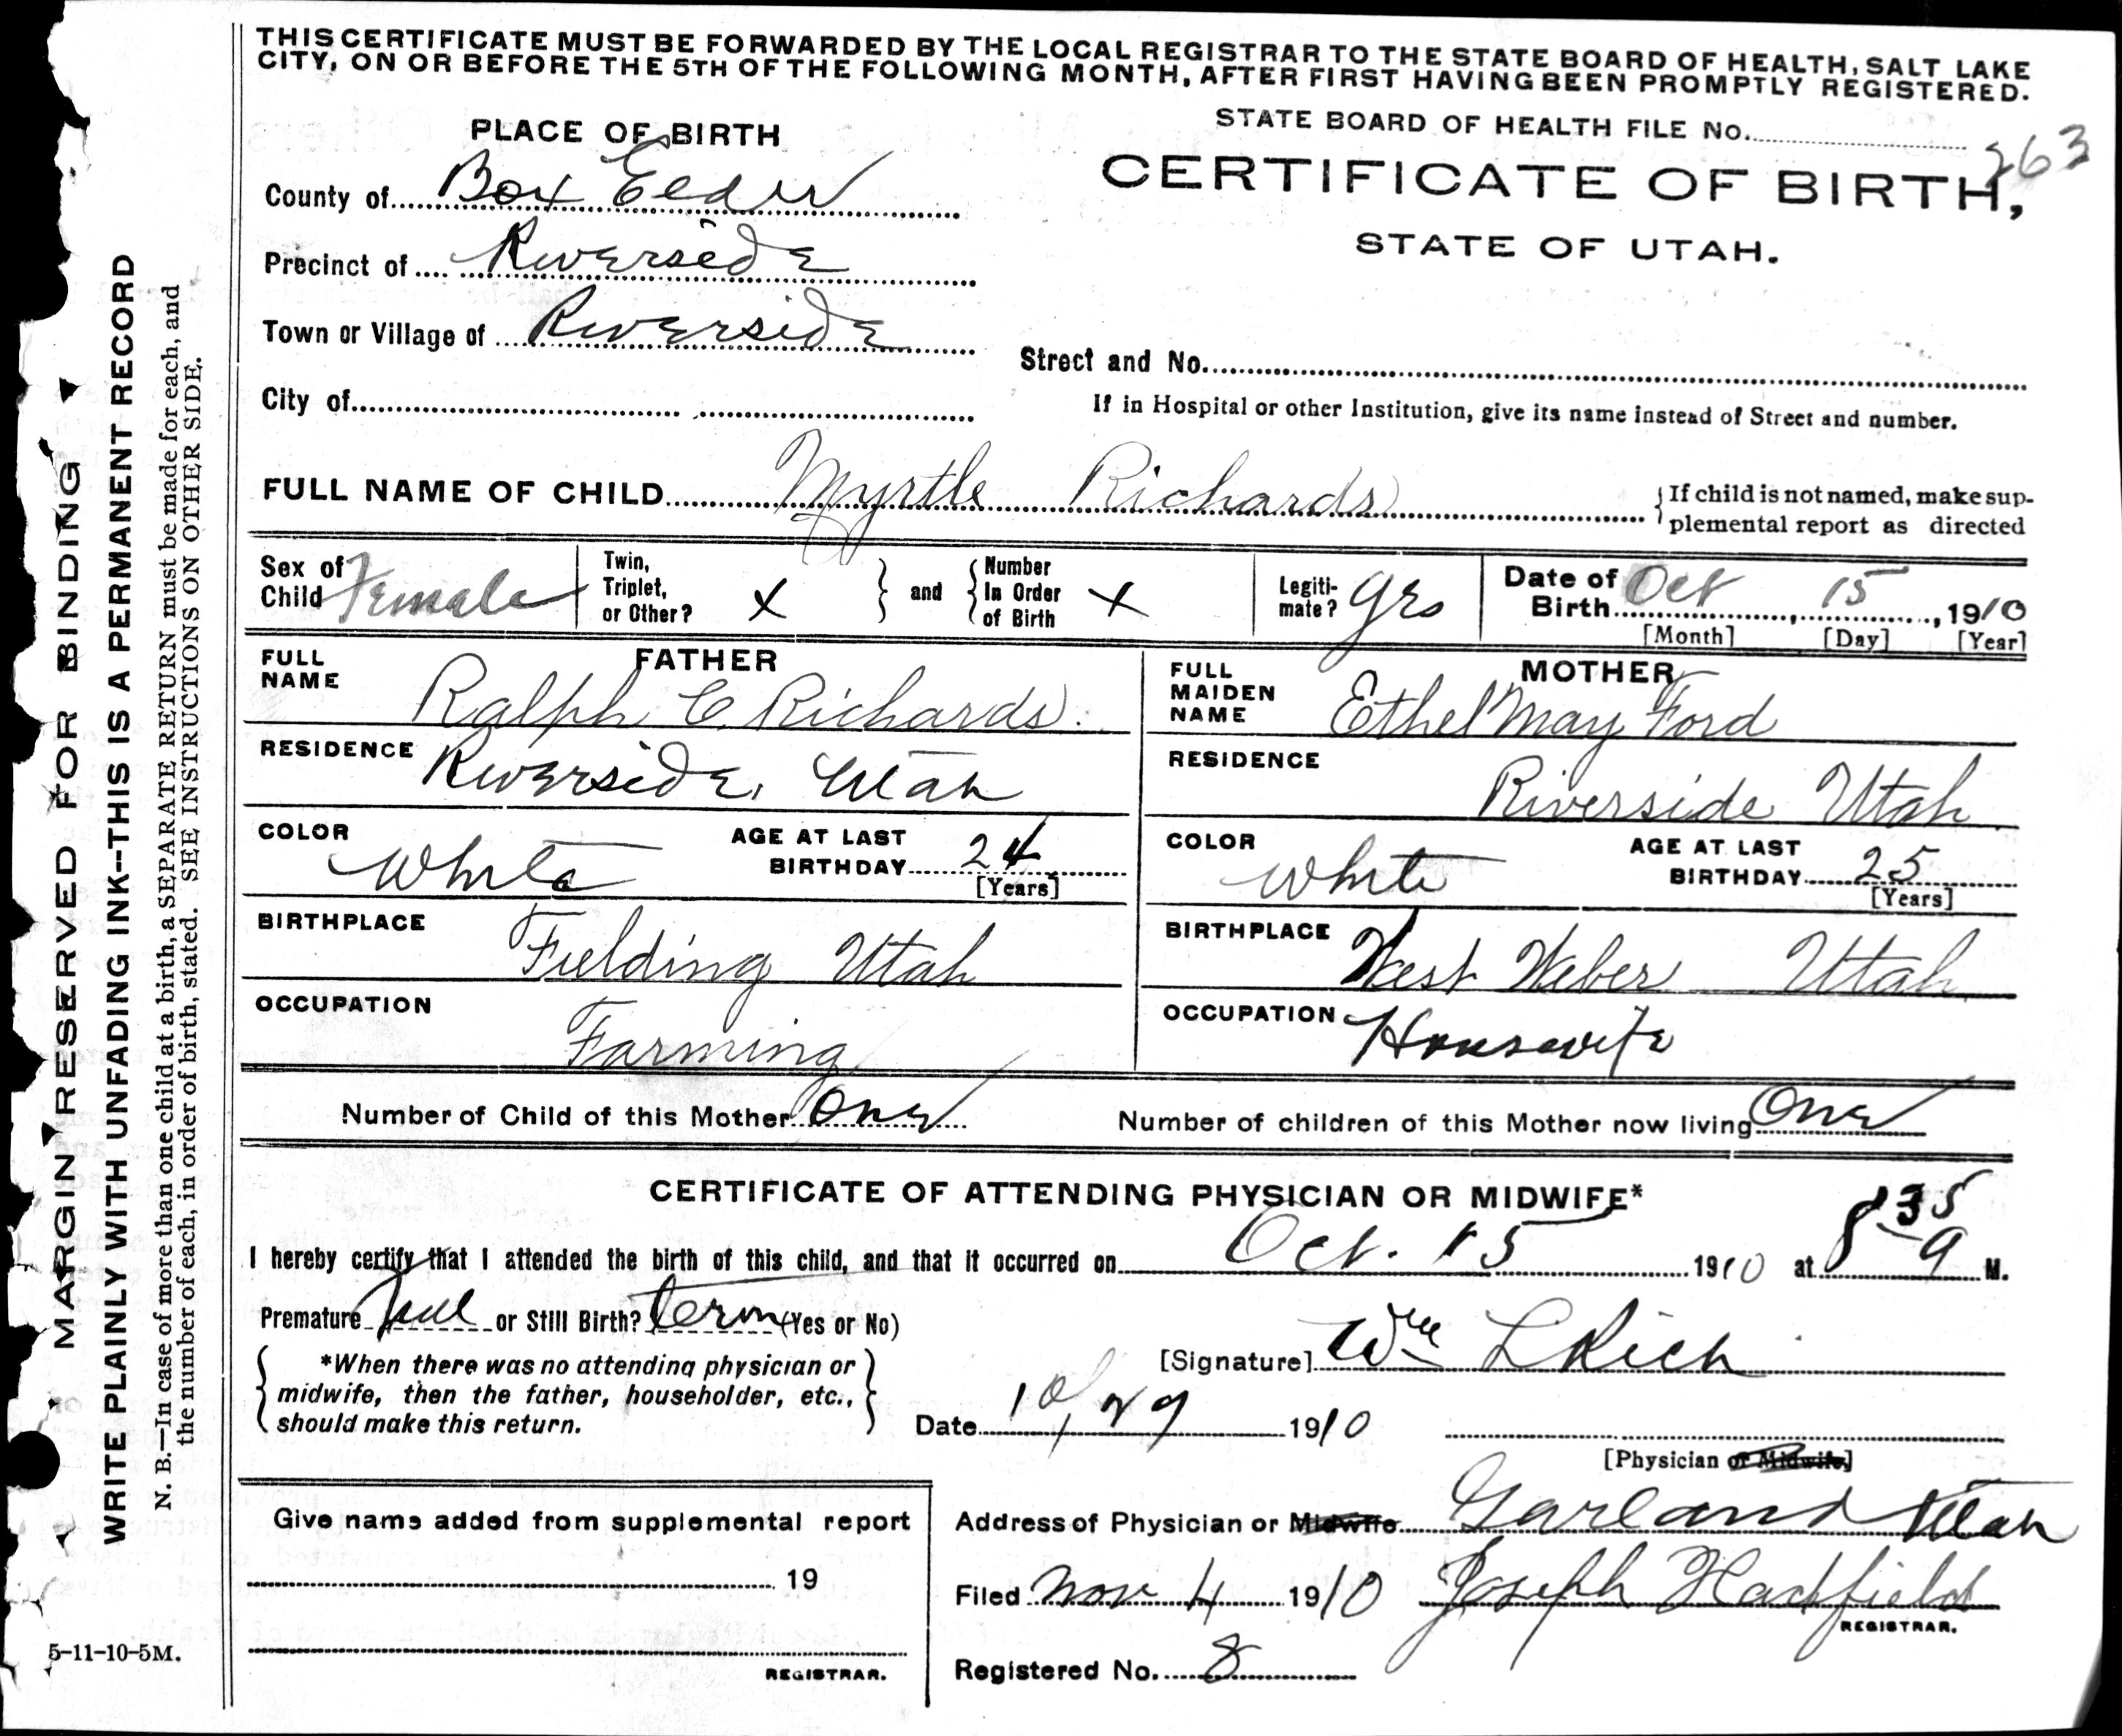 THIS CERTIFICATE MUST BE FORWARDED BY THE LOCAL REGISTRAR TO THE STATE BOARD OF HEALTH, SALT LAKE
CITY, ON OR BEFORE THE 5TH OF THE FOLLOWING MONTH, AFTER FIRST HAVING BEEN PROMPTLY REGISTERED.
PLACE OF BIRTH
STATE BOARD OF HEALTH FILE No. 263
CERTIFICATE OF BIRTH,
STATE OF UTAH.
County of Box Elder
Precinct of Riverside
Town or Village of Riverside
City of
Street and No.
If in Hospital or other Institution, give its name instead of Street and number.
FULL NAME OF CHILD Myrtle Richards
{If child is not named, make sup-
plemental report as directed
Sex of
Child Female
Twin,
Triplet,
or Other? X
} and {
Number
In Order
of Birth X
Legiti-
mate? yes
Date of
Birth Oct 15, 1910
[Month] [Day] [Year]
FATHER
FULL
NAME Ralph C. Richards.
RESIDENCE Riverside, Utah
COLOR White
AGE AT LAST
BIRTHDAY 24
[Years]
BIRTHPLACE Fielding Utah
OCCUPATION Farming
MOTHER
FULL
MAIDEN
NAME Ethel May Ford
RESIDENCE Riverside Utah
COLOR White
AGE AT LAST
BIRTHDAY 25
[Years]
BIRTHPLACE West Weber Utah
OCCUPATION Housewife
Number of Child of this Mother One
Number of children of this Mother now living One
CERTIFICATE OF ATTENDING PHYSICIAN OR MIDWIFE*
I hereby certify that I attended the birth of this child, and that it occurred on Oct. 15 1910 at 8 35 a M.
Premature Full or Still Birth? term (Yes or No)
*When there was no attending physician or
midwife, then the father, householder, etc.,
should make this return.
[Signature] Wm L Rich
Date 10/29 1910
[Physician or Midwife]
Give name added from supplemental report
19
REGISTRAR.
Address of Physician or Midwife Garland Utah
Filed Nov 4 1910 Joseph Hadfield
REGISTRAR.
Registered No. 8
MARGIN RESERVED FOR BINDING
WRITE PLAINLY WITH UNFADING INK--THIS IS A PERMANENT RECORD
N. B.—In case of more than one child at a birth, a SEPARATE RETURN must be made for each, and
the number of each, in order of birth, stated. SEE INSTRUCTIONS ON OTHER SIDE.
5-11-10-5M.